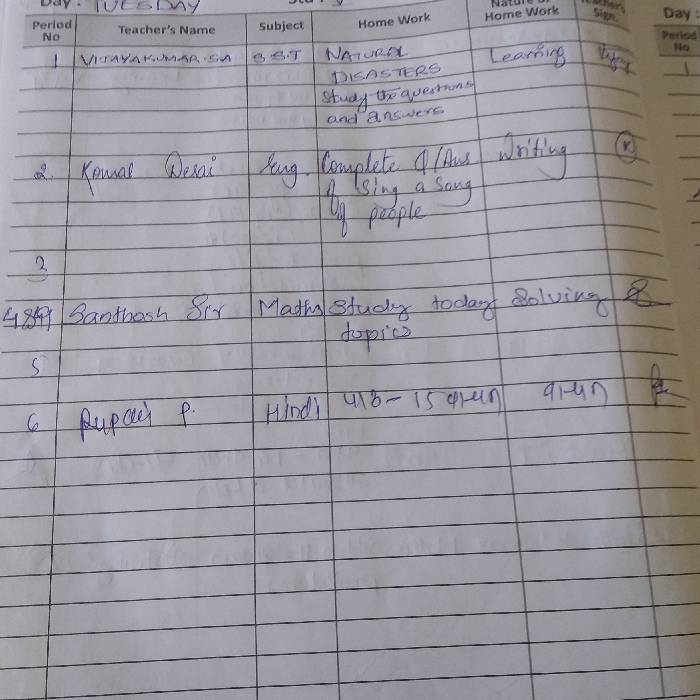 Day: TUESDAY
Period No Teacher's Name Subject Home Work Nature of Home Work Teacher's Sign. Day:
Period No
1 VIJAYAKUMAR.SA S.S.T NATURAL Learning
DISASTERS
Study the questions
and answers
2. Komal Desai Eng. Complete Q/Ans Writing
of sing a song
of people
3
Santhosh Sir Maths Study today Solving
topics
5
6 P. Hindi पाठ - 15 वाचन वाचन